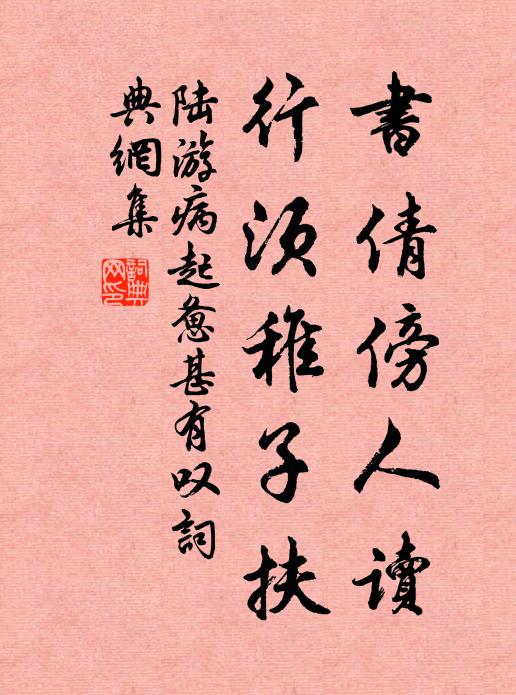 書倩傍人讀
行須稚子扶
陆游病起惫甚有叹詞
典網集
詞典網印